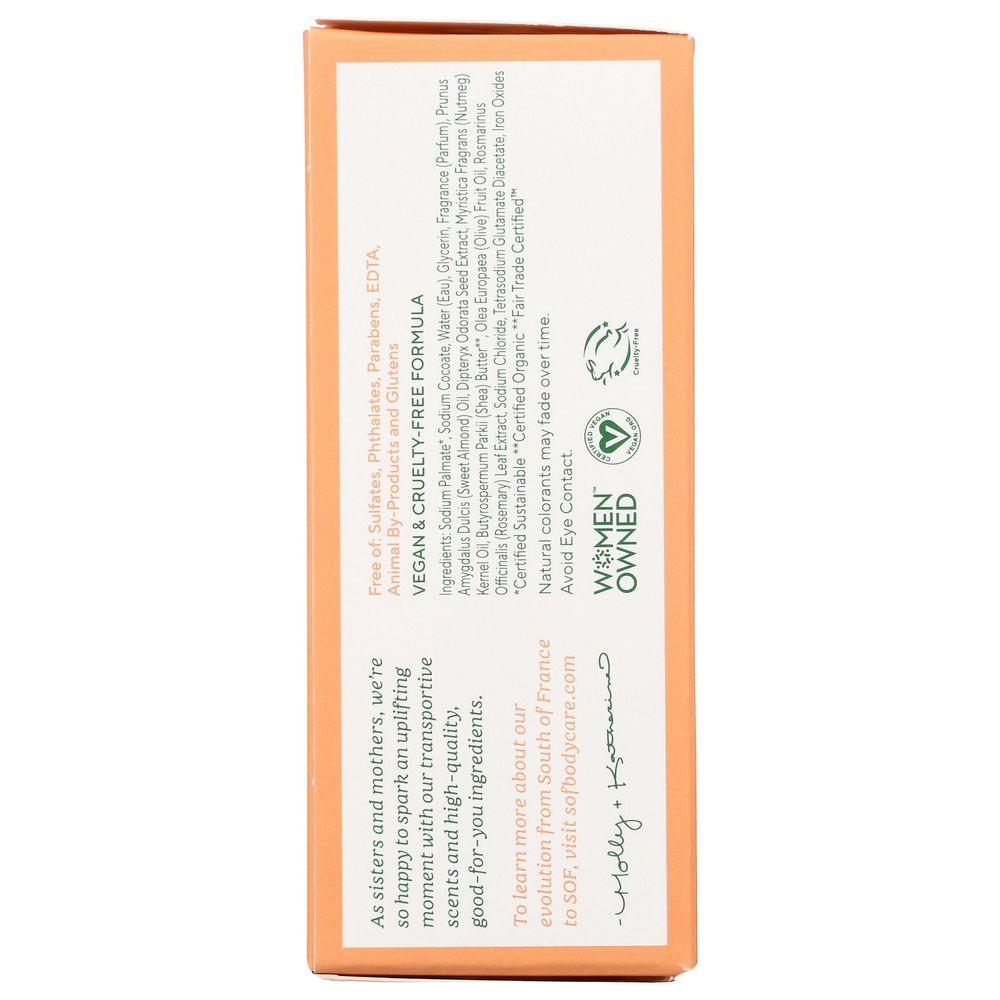 As sisters and mothers, we're
so happy to spark an uplifting
moment with our transportive
scents and high-quality,
good-for-you ingredients.
To learn more about our
evolution from South of France
to SOF, visit sofbodycare.com
-Molley + Katherine
Free of: Sulfates, Phthalates, Parabens, EDTA,
Animal By-Products and Glutens
VEGAN & CRUELTY-FREE FORMULA
Ingredients: Sodium Palmate*, Sodium Cocoate, Water (Eau), Glycerin, Fragrance (Parfum), Prunus
Amygdalus Dulcis (Sweet Almond) Oil, Dipteryx Odorata Seed Extract, Myristica Fragrans (Nutmeg)
Kernel Oil, Butyrospermum Parkii (Shea) Butter**, Olea Europaea (Olive) Fruit Oil, Rosmarinus
Officinalis (Rosemary) Leaf Extract, Sodium Chloride, Tetrasodium Glutamate Diacetate, Iron Oxides
*Certified Sustainable **Certified Organic **Fair Trade Certified™
Natural colorants may fade over time.
Avoid Eye Contact.
WOMEN™
OWNED
CERTIFIED VEGAN
VEGAN.ORG
Cruelty-Free